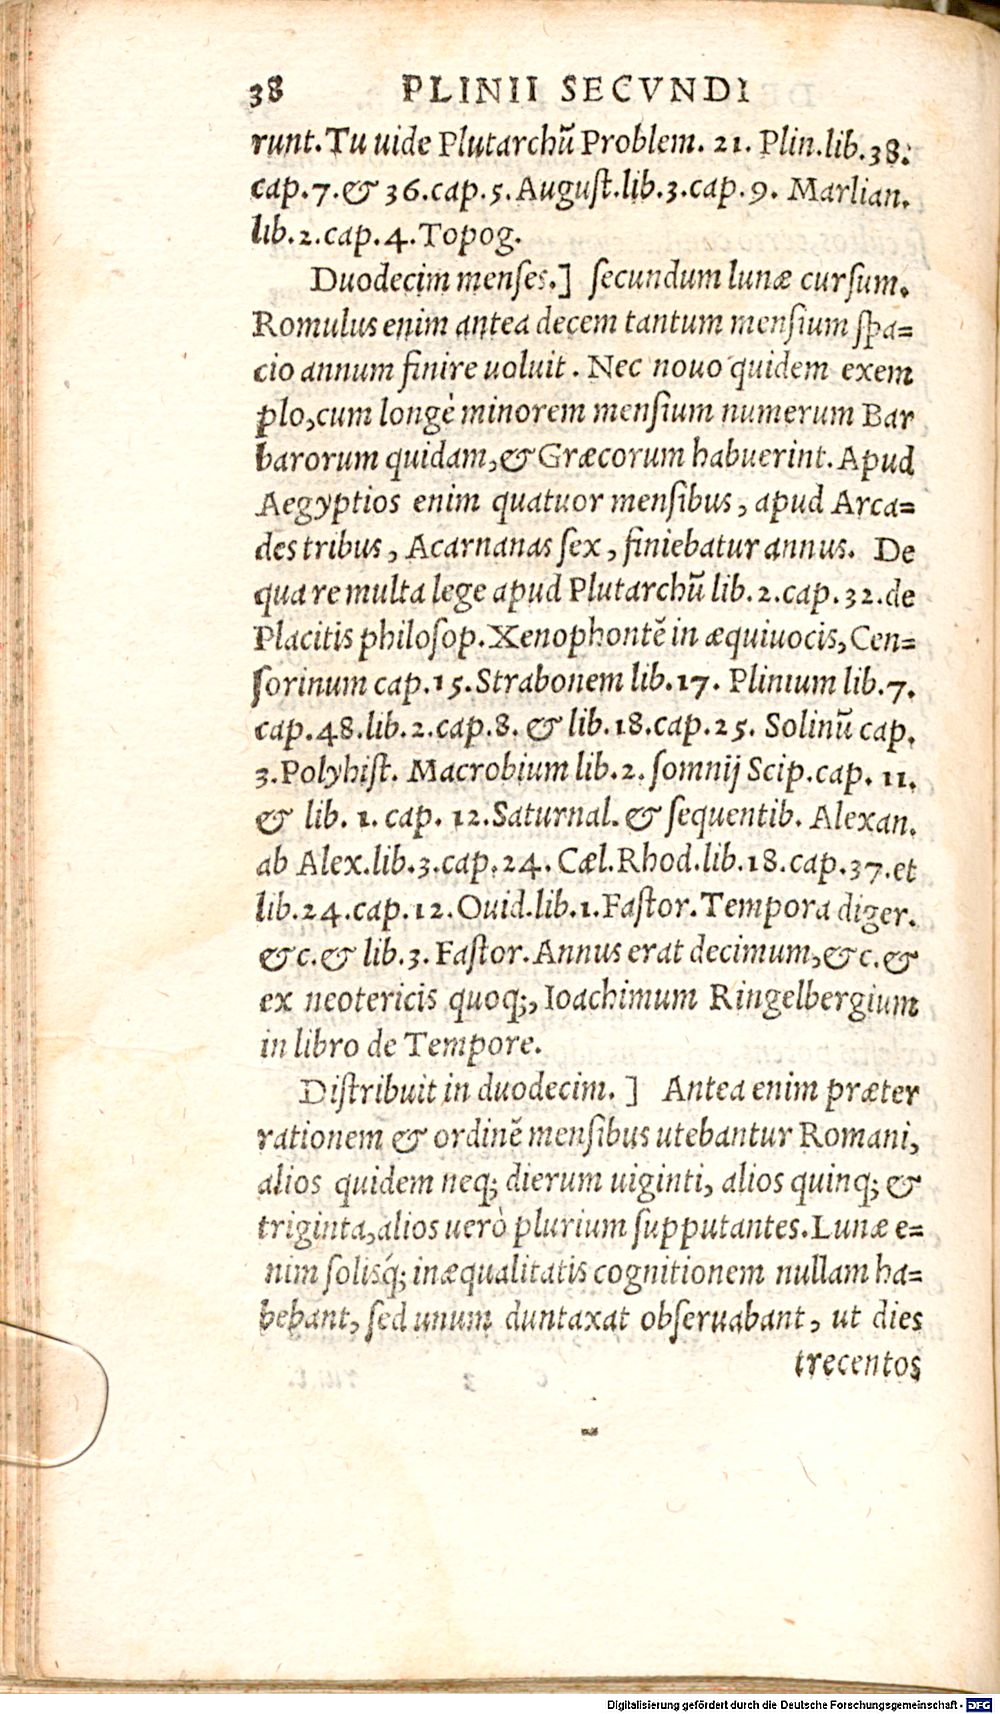 38 PLINII SECVNDI
runt. Tu uide Plutarchū Problem. 21. Plin. lib. 38.
cap. 7. & 36. cap. 5. August. lib. 3. cap. 9. Marlian.
lib. 2. cap. 4. Topog.
Duodecim menses.] secundum lunæ cursum.
Romulus enim antea decem tantum mensium spa=
cio annum finire uoluit. Nec nouo quidem exem
plo, cum longè minorem mensium numerum Bar
barorum quidam, & Græcorum habuerint. Apud
Aegyptios enim quatuor mensibus, apud Arca=
des tribus, Acarnanas sex, finiebatur annus. De
qua re multa lege apud Plutarchū lib. 2. cap. 32. de
Placitis philosop. Xenophontē in æquiuocis, Cen=
sorinum cap. 15. Strabonem lib. 17. Plinium lib. 7.
cap. 48. lib. 2. cap. 8. & lib. 18. cap. 25. Solinū cap.
3. Polyhist. Macrobium lib. 2. somnij Scip. cap. 11.
& lib. 1. cap. 12. Saturnal. & sequentib. Alexan.
ab Alex. lib. 3. cap. 24. Cæl. Rhod. lib. 18. cap. 37. et
lib. 24. cap. 12. Ouid. lib. 1. Fastor. Tempora diger.
&c. & lib. 3. Fastor. Annus erat decimum, &c. &
ex neotericis quoq;, Ioachimum Ringelbergium
in libro de Tempore.
Distribuit in duodecim.] Antea enim præter
rationem & ordinē mensibus utebantur Romani,
alios quidem neq; dierum uiginti, alios quinq; &
triginta, alios uerò plurium supputantes. Lunæ e=
nim solisq́; inæqualitatis cognitionem nullam ha=
bebant, sed unum duntaxat obseruabant, ut dies
trecentos
Digitalisierung gefördert durch die Deutsche Forschungsgemeinschaft - DFG